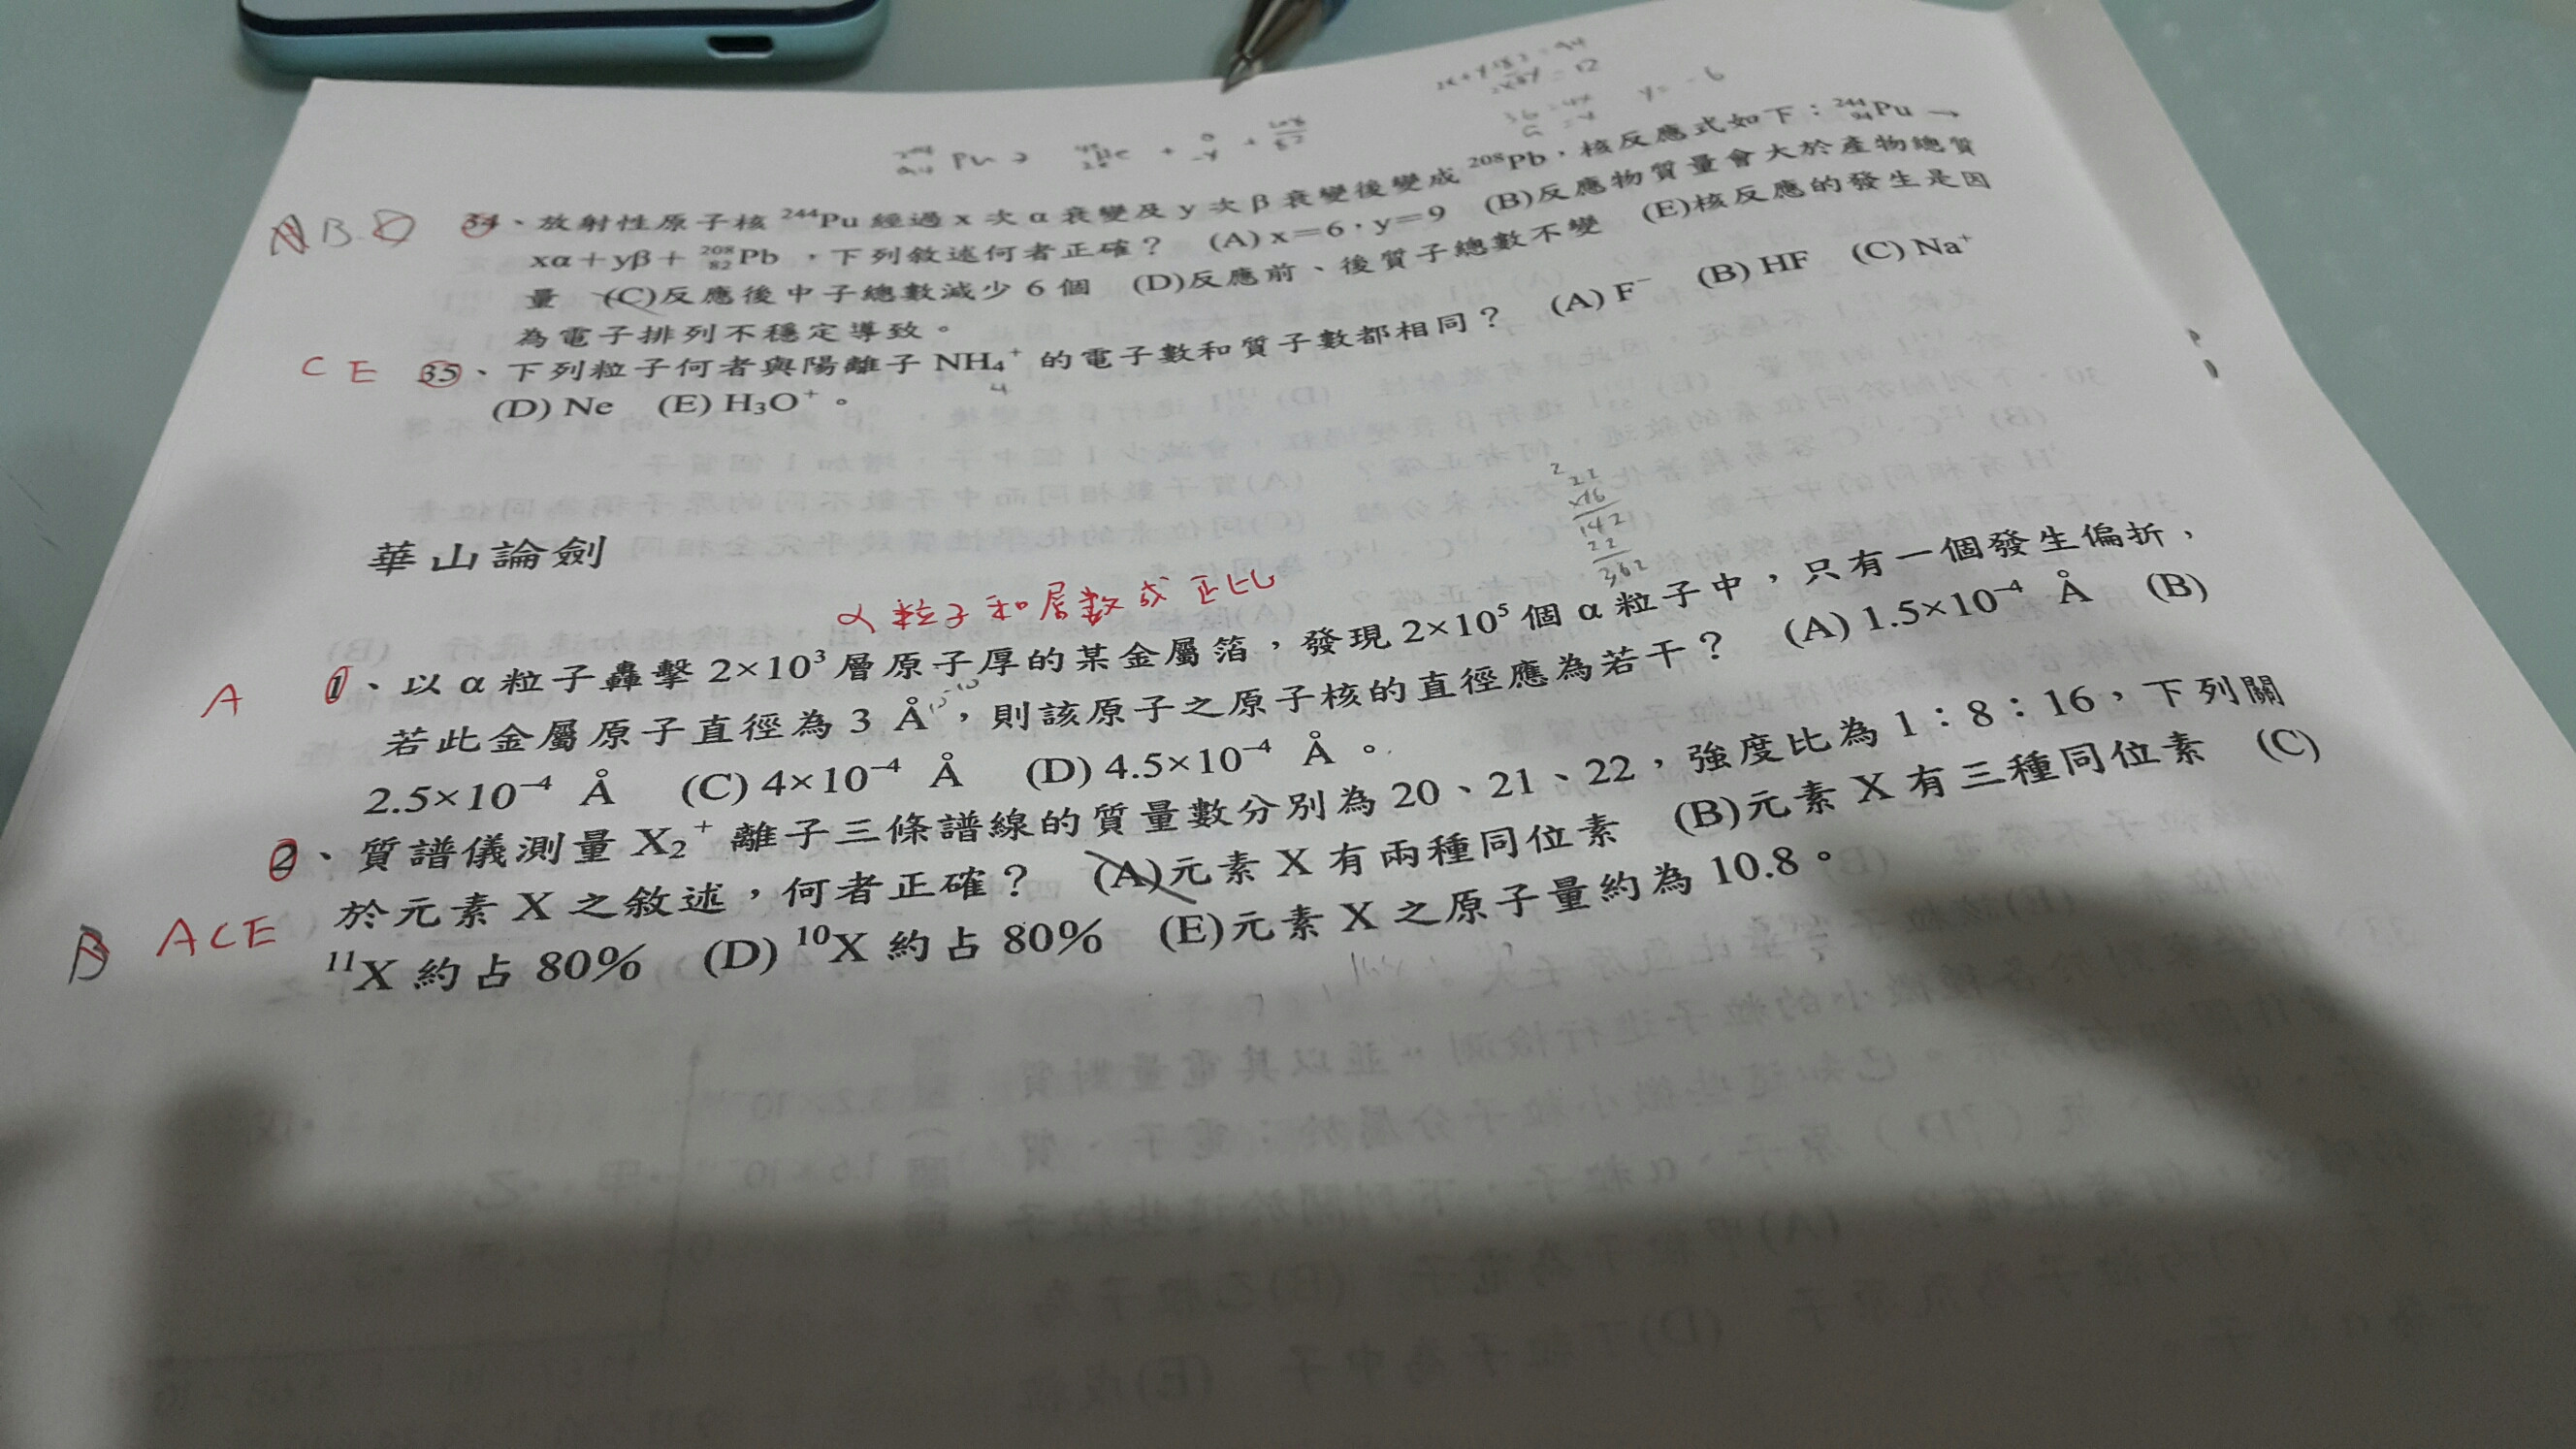 34、放射性原子核 ²⁴⁴Pu 經過 x 次 α 衰變及 y 次 β 衰變後變成 ²⁰⁸Pb，核反應式如下：²⁴⁴₉₄Pu →
xα＋yβ＋ ²⁰⁸₈₂Pb ，下列敘述何者正確？ (A) x＝6，y＝9 (B)反應物質量會大於產物總質
量 (C)反應後中子總數減少 6 個 (D)反應前、後質子總數不變 (E)核反應的發生是因
為電子排列不穩定導致。
C E 35、下列粒子何者與陽離子 NH₄⁺ 的電子數和質子數都相同？ (A) F⁻ (B) HF (C) Na⁺
4
(D) Ne (E) H₃O⁺。
22
142
22
362
華山論劍
α 粒子和層數成正比
A 1、以 α 粒子轟擊 2×10³ 層原子厚的某金屬箔，發現 2×10⁵ 個 α 粒子中，只有一個發生偏折，
若此金屬原子直徑為 3 Å，則該原子之原子核的直徑應為若干？ (A) 1.5×10⁻⁴ Å (B)
2.5×10⁻⁴ Å (C) 4×10⁻⁴ Å (D) 4.5×10⁻⁴ Å。
2、質譜儀測量 X₂⁺ 離子三條譜線的質量數分別為 20、21、22，強度比為 1：8：16，下列關
ACE 於元素 X 之敘述，何者正確？ (A)元素 X 有兩種同位素 (B)元素 X 有三種同位素 (C)
¹¹X 約占 80% (D) ¹⁰X 約占 80% (E)元素 X 之原子量約為 10.8。